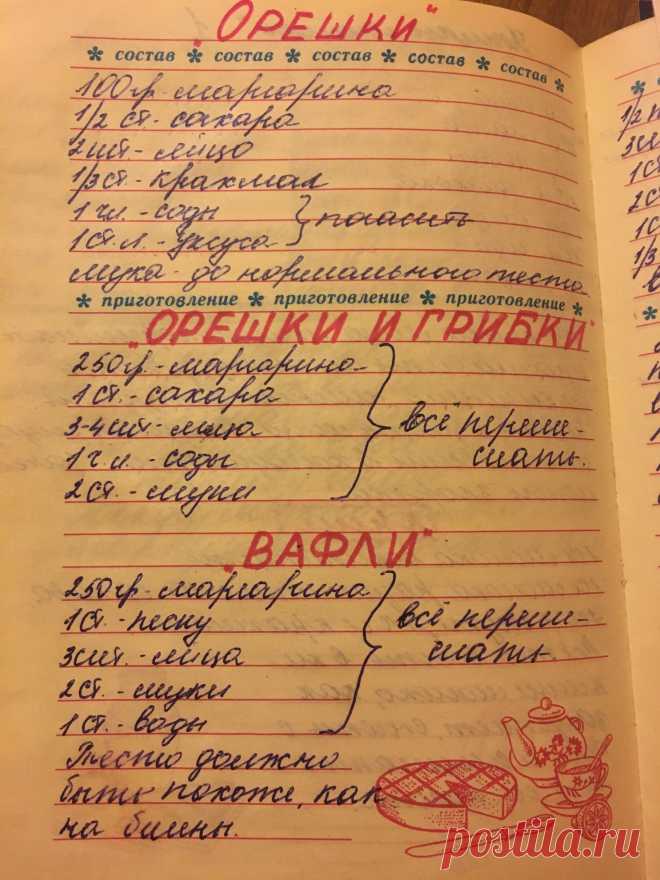 "ОРЕШКИ"
* состав * состав * состав * состав * состав *
100гр. маргарина
1/2 ст. сахара
2 шт. - яйцо
1/3 ст. - крахмал
1 ч.л. - соды } погасить
1 ст. л. - уксуса
мука - до нормального теста
* приготовление * приготовление * приготовление *
"ОРЕШКИ И ГРИБКИ"
250гр. - маргарина
1 ст. - сахара
3-4 шт. - яйца } всё переме-
1 ч.л. - соды шать.
2 ст. - муки
"ВАФЛИ"
250гр. маргарина
1 ст. - песку } всё переме-
3 шт. - яйца шать.
2 ст. - муки
1 ст. - воды
Тесто должно
быть похоже, как
на блины.
postila.ru